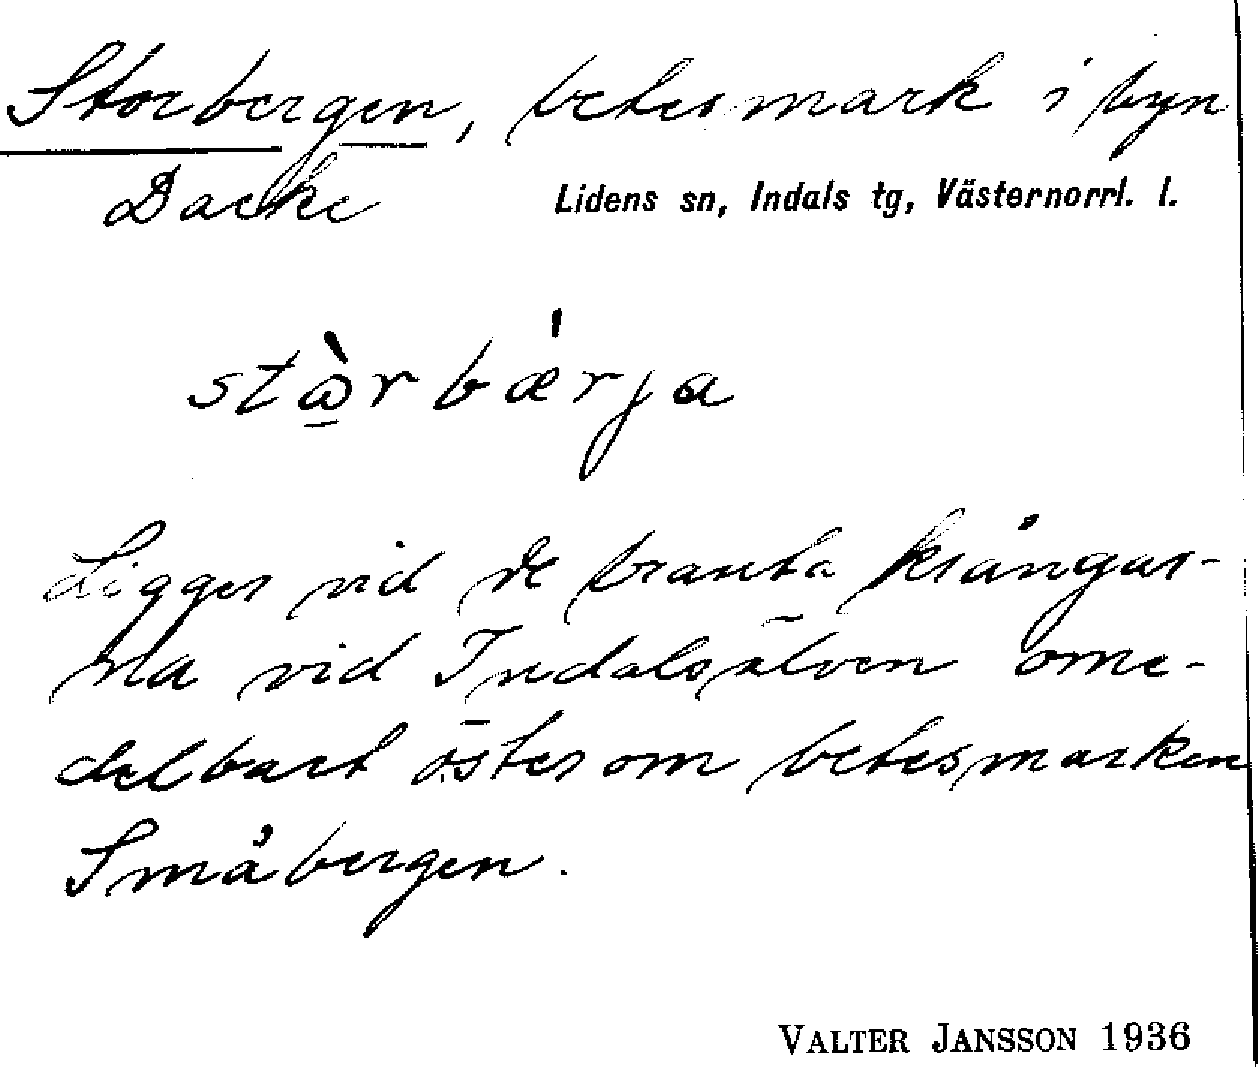 Storbergen, betesmark i byn
Backe Lidens sn, Indals tg, Västernorrl. l.
stɷ̀rbǽrja
Ligger vid de branta krångar-
na vid Indalsälven ome-
delbart öster om betesmarken
Småbergen.
VALTER JANSSON 1936